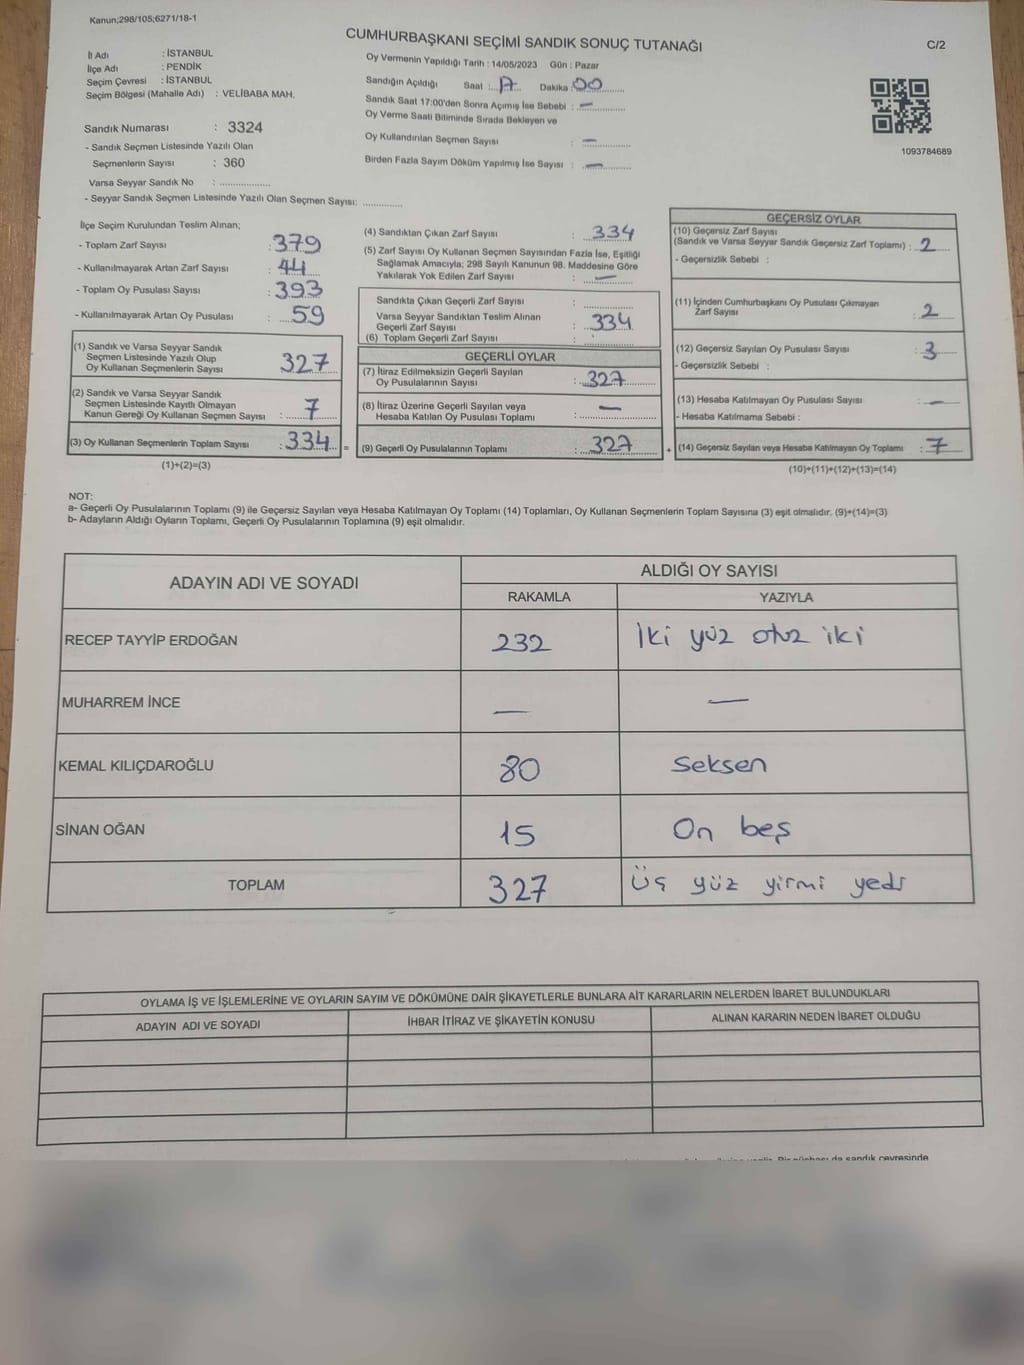 Kanun;298/105;6271/18-1
CUMHURBAŞKANI SEÇİMİ SANDIK SONUÇ TUTANAĞI
C/2
İl Adı : İSTANBUL
İlçe Adı : PENDİK
Seçim Çevresi : İSTANBUL
Seçim Bölgesi (Mahalle Adı) : VELİBABA MAH.
Sandık Numarası : 3324
- Sandık Seçmen Listesinde Yazılı Olan
Seçmenlerin Sayısı : 360
Varsa Seyyar Sandık No : ...................
- Seyyar Sandık Seçmen Listesinde Yazılı Olan Seçmen Sayısı: ..............
Oy Vermenin Yapıldığı Tarih : 14/05/2023 Gün : Pazar
Sandığın Açıldığı Saat : 17 Dakika : 00
Sandık Saat 17:00'den Sonra Açımış İse Sebebi : —
Oy Verme Saati Bitiminde Sırada Bekleyen ve
Oy Kullandırılan Seçmen Sayısı : —
Birden Fazla Sayım Döküm Yapılmış İse Sayısı : —
1093784689
İlçe Seçim Kurulundan Teslim Alınan;
- Toplam Zarf Sayısı : 379
- Kullanılmayarak Artan Zarf Sayısı : 44
- Toplam Oy Pusulası Sayısı : 393
- Kullanılmayarak Artan Oy Pusulası : 59
(1) Sandık ve Varsa Seyyar Sandık
Seçmen Listesinde Yazılı Olup
Oy Kullanan Seçmenlerin Sayısı 327
(2) Sandık ve Varsa Seyyar Sandık
Seçmen Listesinde Kayıtlı Olmayan
Kanun Gereği Oy Kullanan Seçmen Sayısı : 7
(3) Oy Kullanan Seçmenlerin Toplam Sayısı : 334 =
(1)+(2)=(3)
(4) Sandıktan Çıkan Zarf Sayısı : 334
(5) Zarf Sayısı Oy Kullanan Seçmen Sayısından Fazla İse, Eşitliği
Sağlamak Amacıyla; 298 Sayılı Kanunun 98. Maddesine Göre
Yakılarak Yok Edilen Zarf Sayısı : —
Sandıkta Çıkan Geçerli Zarf Sayısı : ..............
Varsa Seyyar Sandıktan Teslim Alınan
Geçerli Zarf Sayısı : 334
(6) Toplam Geçerli Zarf Sayısı : ..............
GEÇERLİ OYLAR
(7) İtiraz Edilmeksizin Geçerli Sayılan
Oy Pusulalarının Sayısı : 327
(8) İtiraz Üzerine Geçerli Sayılan veya
Hesaba Katılan Oy Pusulası Toplamı : —
(9) Geçerli Oy Pusulalarının Toplamı : 327 +
GEÇERSİZ OYLAR
(10) Geçersiz Zarf Sayısı
(Sandık ve Varsa Seyyar Sandık Geçersiz Zarf Toplamı) : 2
- Geçersizlik Sebebi :
(11) İçinden Cumhurbaşkanı Oy Pusulası Çıkmayan
Zarf Sayısı : 2
(12) Geçersiz Sayılan Oy Pusulası Sayısı : 3
- Geçersizlik Sebebi :
(13) Hesaba Katılmayan Oy Pusulası Sayısı : —
- Hesaba Katılmama Sebebi :
(14) Geçersiz Sayılan veya Hesaba Katılmayan Oy Toplamı : 7
(10)+(11)+(12)+(13)=(14)
NOT:
a- Geçerli Oy Pusulalarının Toplamı (9) ile Geçersiz Sayılan veya Hesaba Katılmayan Oy Toplamı (14) Toplamları, Oy Kullanan Seçmenlerin Toplam Sayısına (3) eşit olmalıdır. (9)+(14)=(3)
b- Adayların Aldığı Oyların Toplamı, Geçerli Oy Pusulalarının Toplamına (9) eşit olmalıdır.
ADAYIN ADI VE SOYADI
ALDIĞI OY SAYISI
RAKAMLA YAZIYLA
RECEP TAYYİP ERDOĞAN 232 İki yüz otuz iki
MUHARREM İNCE — —
KEMAL KILIÇDAROĞLU 80 Seksen
SİNAN OĞAN 15 On beş
TOPLAM 327 Üç yüz yirmi yedi
OYLAMA İŞ VE İŞLEMLERİNE VE OYLARIN SAYIM VE DÖKÜMÜNE DAİR ŞİKAYETLERLE BUNLARA AİT KARARLARIN NELERDEN İBARET BULUNDUKLARI
ADAYIN ADI VE SOYADI İHBAR İTİRAZ VE ŞİKAYETİN KONUSU ALINAN KARARIN NEDEN İBARET OLDUĞU
da sandık çevresinde